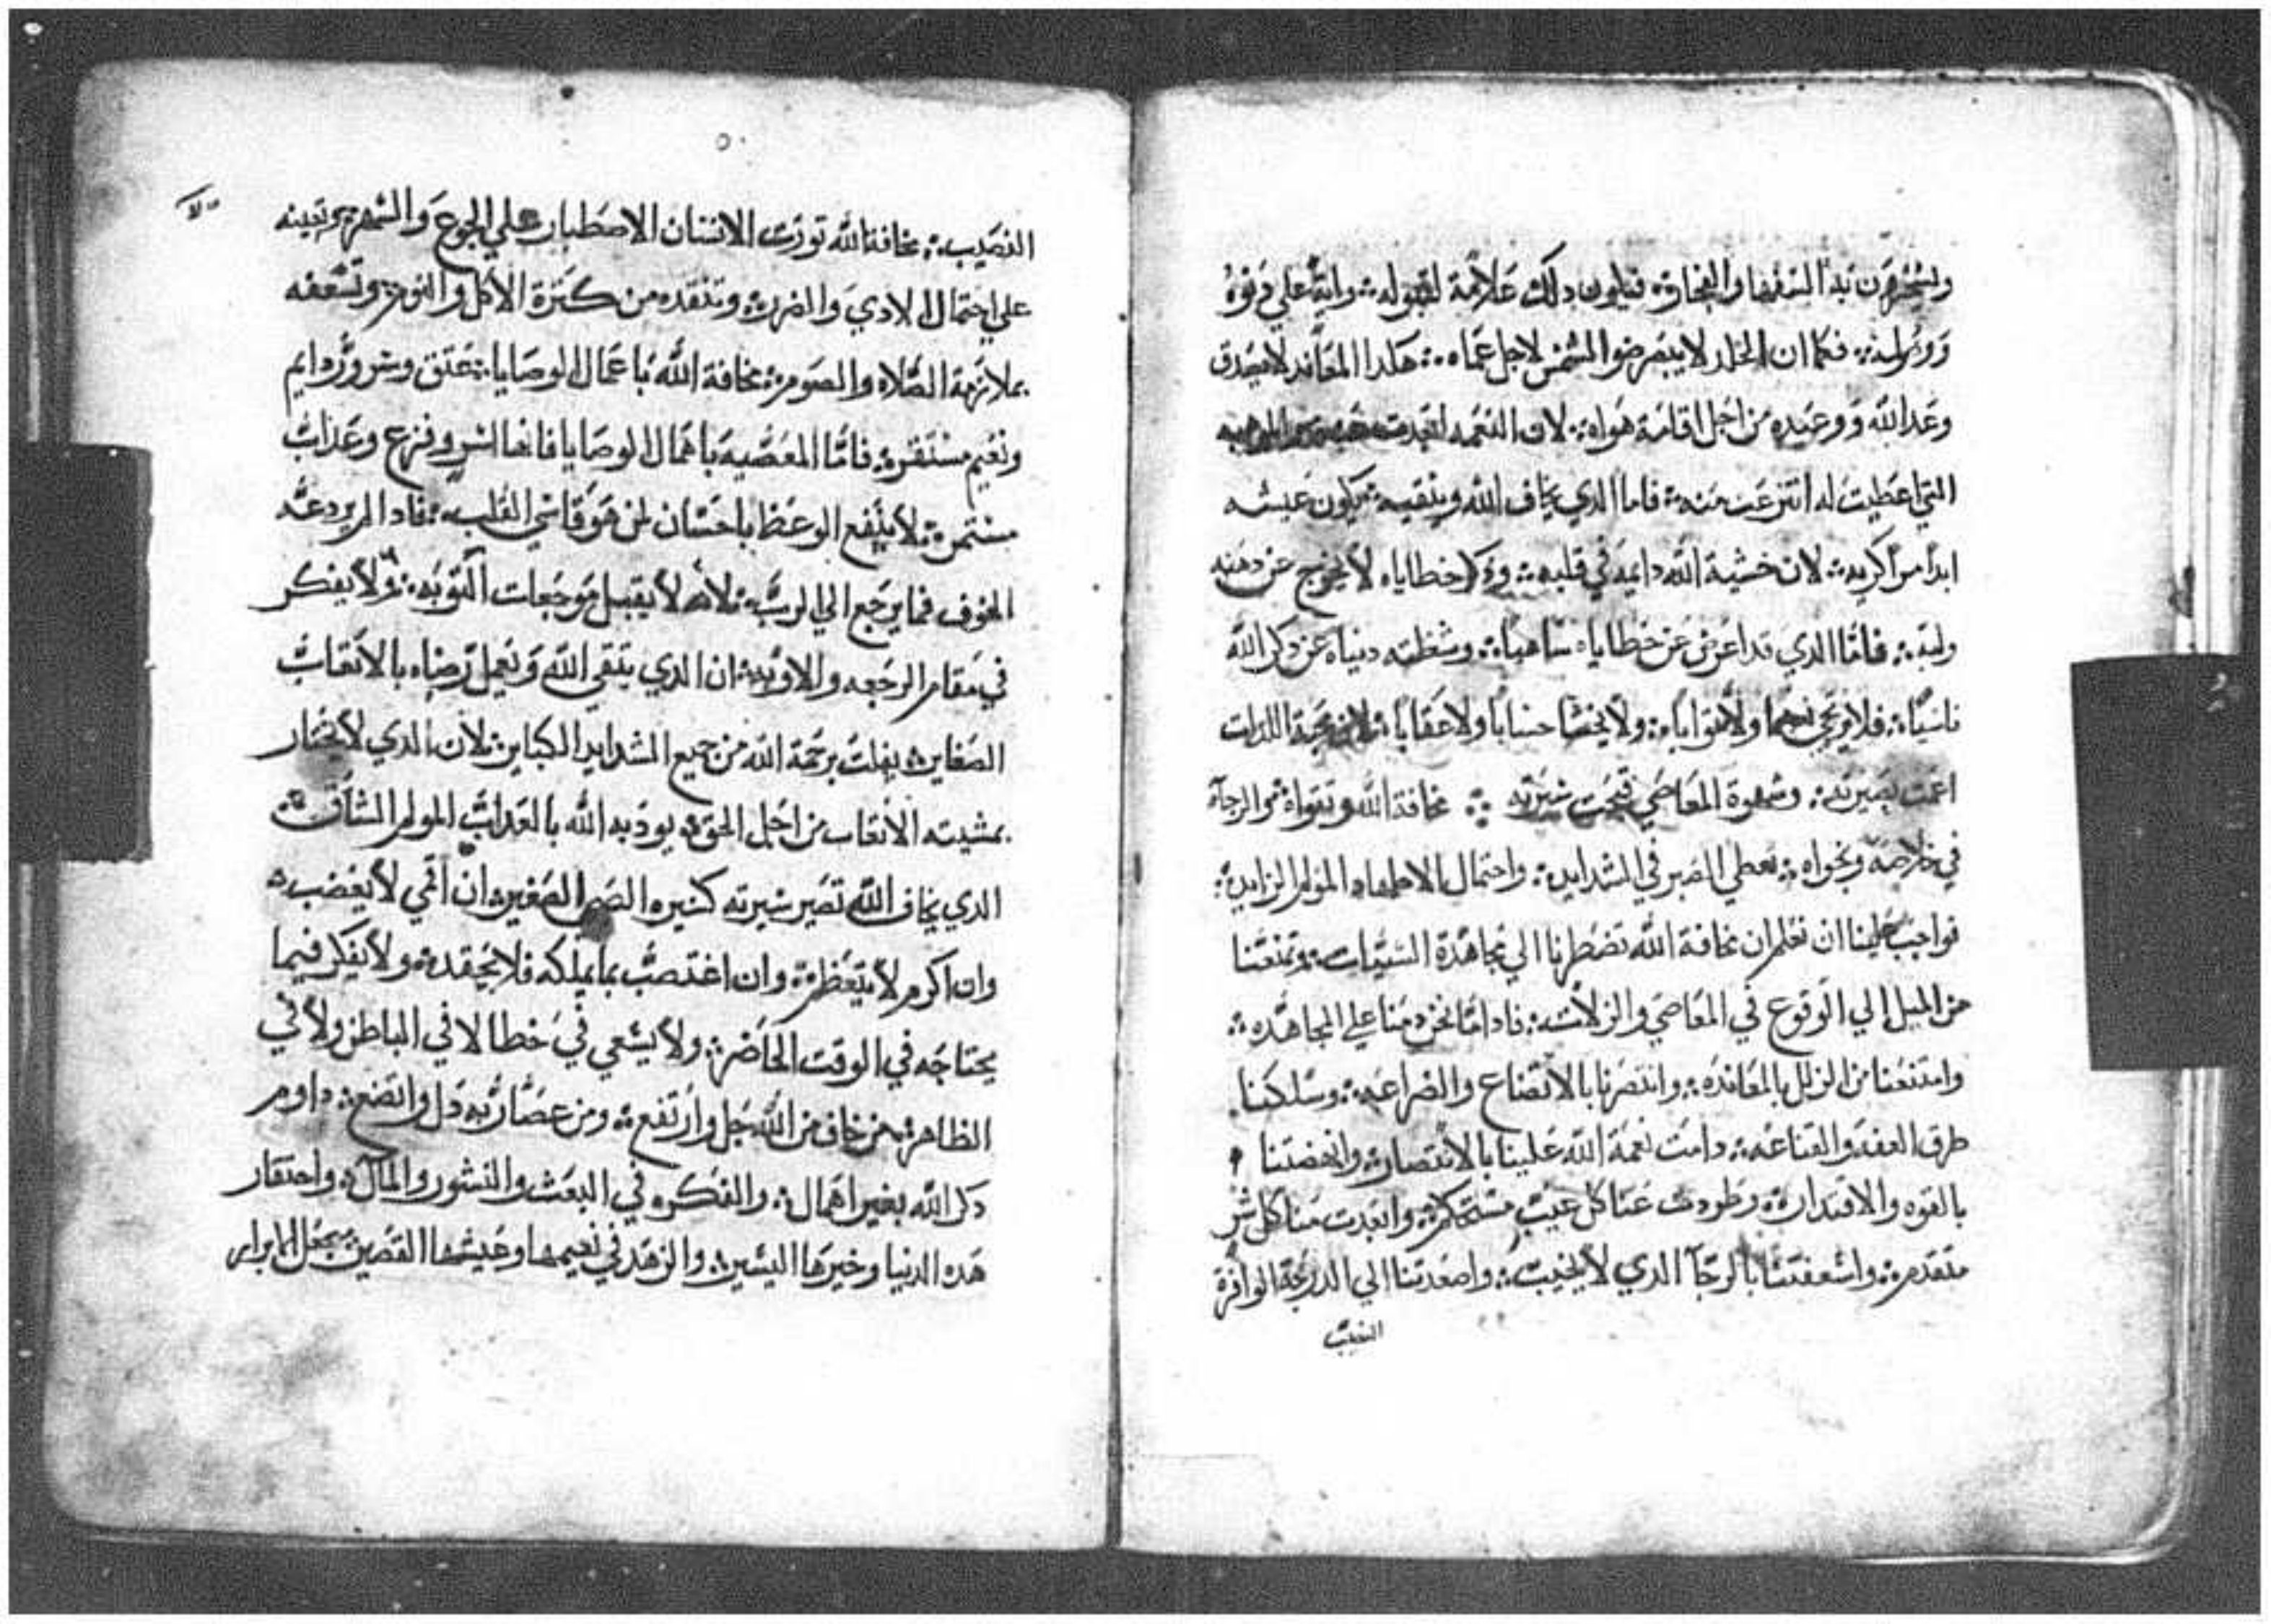 وليتجرهن بدا السفها والفجار؞ فيكون دلك علامة لقبوله؞ واية علي دنوه
ووصوله؞ فكما ان الخلد لا يبصر ضو الشمس لاجل عماه؞ هكدا المعاند لا يصدق
وعد الله ووعيده من اجل اقامة هواه؞ لان النعمه ابعدت
التي اعطيت له انتزعت منه؞ فاما الدي يخاف الله ويتقيه؞ يكون عيشه
ابدا مرا كريه؞ لان خشية الله دايمه في قلبه؞ ودكر خطاياه لا يخرج عن دهنه
ولبه؞ فاما الدي قد اعرض عن خطاياه ساهيا؞ وشغلته دنياه عن دكر الله
ناسيا؞ فلا يرتجي نعيما ولا ثوابا؞ ولا يخشا حسابا ولا عقابا؞ لان محبة اللدات
اعمت بصيرته؞ وشهوة المعاصي قبحت سيرته ؞ مخافة الله وتقواه؞ والرجآ
في خلاصه ونجواه؞ تعطي الصبر في الشدايد؞ واحتمال الاضطهاد المولم الزايد؞
فواجب علينا ان نعلم ان مخافة الله تضطرنا الي مجاهدة السيات؞ وتمنعنا
من الميل الي الوقوع في المعاصي والزلات؞ فادا ما نحن دمنا علي المجاهده؞
وامتنعنا من الزلل بالمعانده؞ وانتصرنا بالاتضاع والضراعه؞ وسلكنا
طرق العفه والقناعه؞ دامت نعمة الله علينا بالانتصار؞ وانهضتنا
بالقوه والاقتدار؞ وطردت عنا كل عيب مستحكم؞ وابعدت منا كل شر
متقدم؞ واسعفتنا بالرجآ الدي لا يخيب؞ واصعدتنا الي الدرجة الوافرة
النصيب
٥٠
النصيب؞ مخافة الله تورت الانسان الاصطبار علي الجوع والسهر؞ وتعينه
علي احتمال الادي والضرر؞ وتنقده من كترة الاكل والنوم؞ وتسعفه
بملازمة الصلاه والصوم؞ مخافة الله باعمال الوصايا؞ عتق وسرور دايم
ونعيم مستقر؞ فاما المعصيه باهمال الوصايا فانها اسر وفزع وعداب
مستمر؞ لا ينفع الوعظ باحسان لمن هو قاسي القلب؞ فادا لم يردعه
الخوف فما يرجع الي الرب؞ لانه لا يقبل موجعات التوبه؞ ولا يفكر
في مقام الرجعه والاوبه؞ ان الدي يتقي الله ويعمل رضاه بالاتعاب
الصغاير؞ يفلت برحمة الله من جميع الشدايد الكباير؞ لان الدي لا يختار
بمشيته الاتعاب من اجل الحق؞ يودبه الله بالعداب المولم الشاق؞
الدي يخاف الله تصير سيرته كسيره الصبي الصغير؞ ان اقمي لا يغضب؞
وان اكرم لا يتعظم؞ وان اغتصب بما يملكه فلا يحقد؞ ولا يفكر فيما
يحتاجه في الوقت الحاضر؞ ولا يسعي في خطا لا في الباطن ولا في
الظاهر؞ من خاف من الله جل وارتفع؞ ومن عصا ربه دل واتضع؞ داوم
دكر الله بغير اهمال؞ والفكره في البعث والنشور والمآل؞ واحتقار
هده الدنيا وخيرها اليسير؞ والزهد في نعيمها وعيشها القصير؞ يجعل الابرار